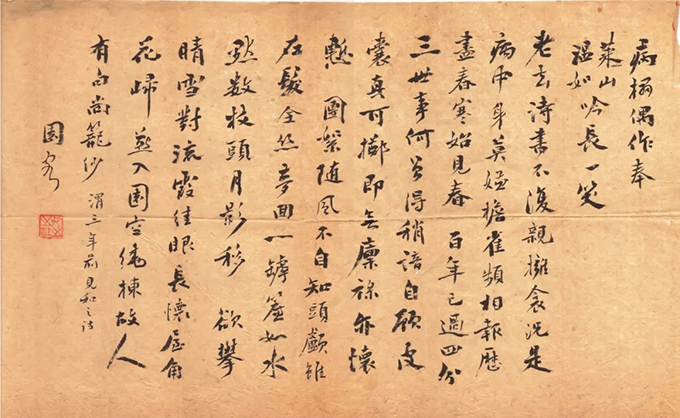 病榻偶作奉
萊山
温如吟長一笑
老去詩書不復親擁衾況是
病中身莫嫌檐雀頻相報歷
盡春寒始見春 百年已過四分
三世事何曾得稍諳自顧皮
囊真可擲即無廩祿亦懷
慙 團絮随風不自知頭顱雖
在髮全絲夢回一罅簾如水
默数枝頭月影移 欲攀
晴雪對流霞眼長懷屋角
花歸燕入園空繞棟故人
有句尚籠紗 謂三年前見和之詩